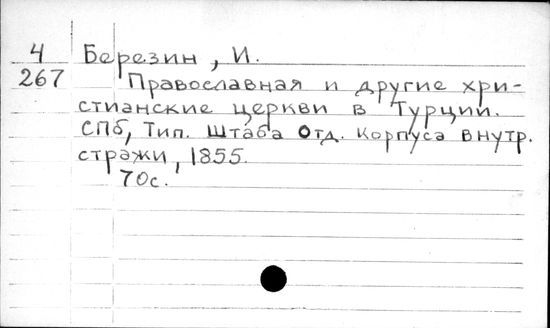 4 Березин, И.
267 Православная и другие хри-
стианские церкви в Турции.
СПб, Тип. Штаба Отд. Корпуса внутр.
стражи, 1855.
70с.